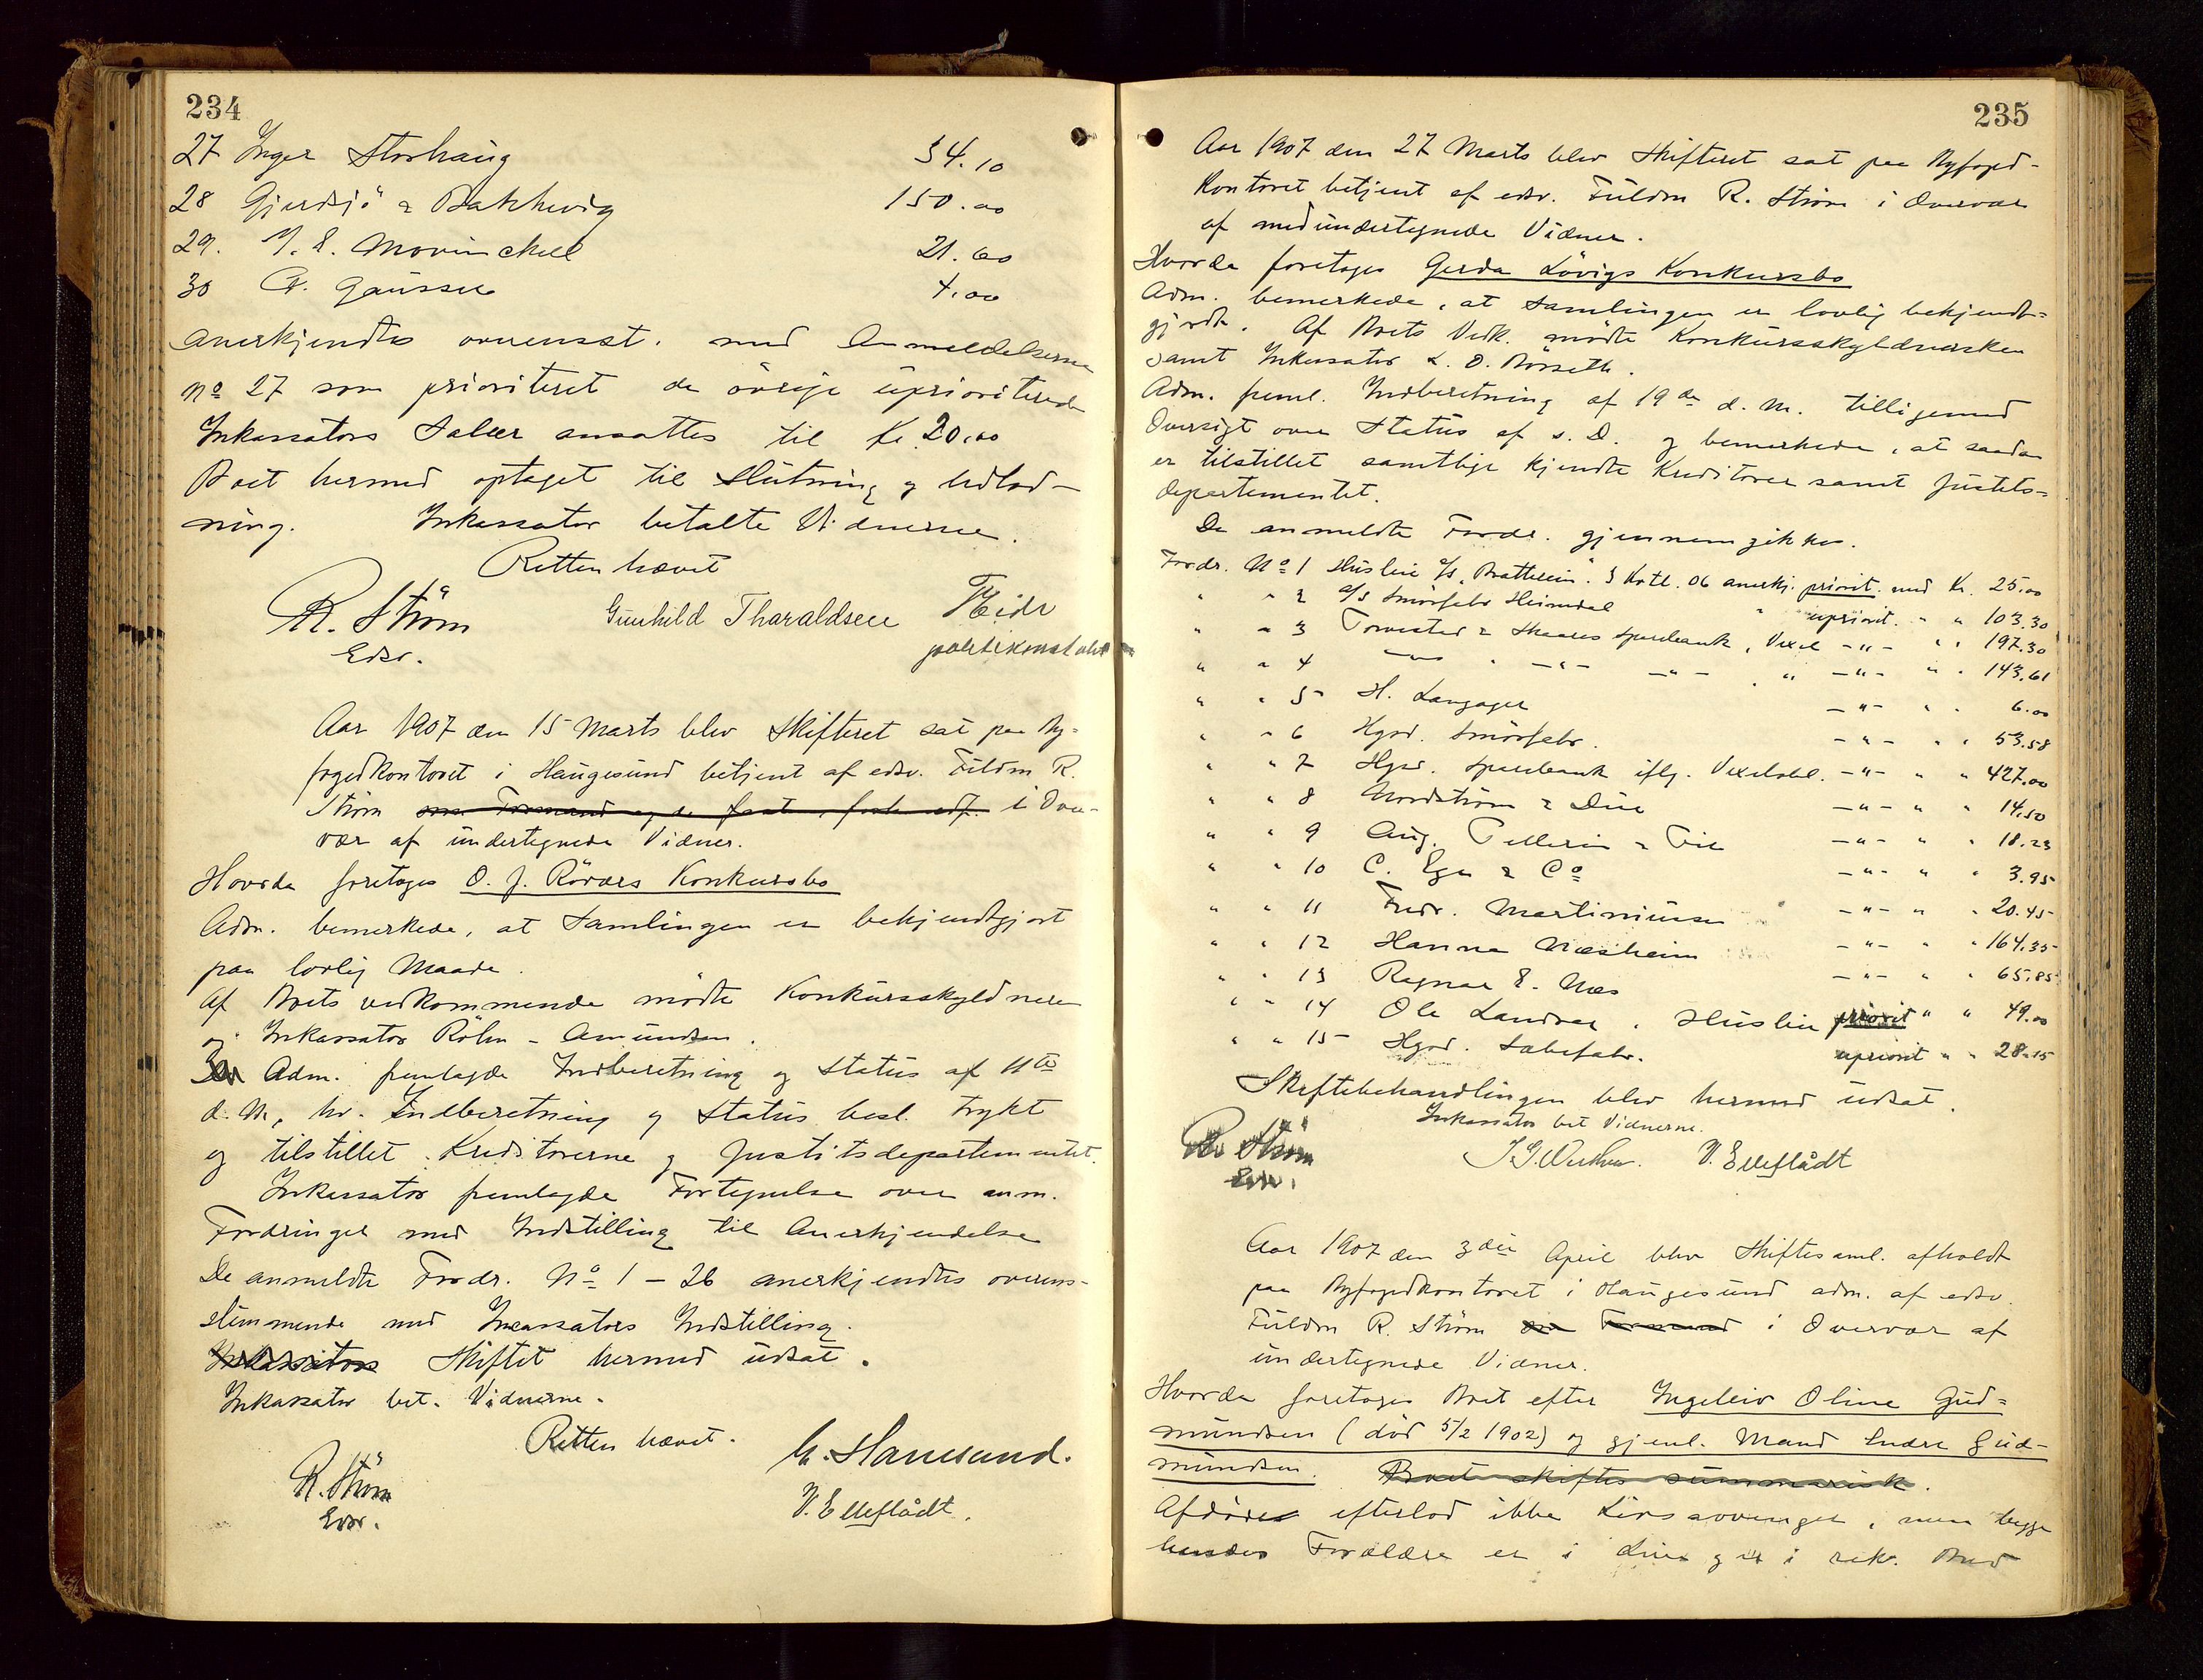 234
27 Inger Storhaug 54.10
28 Gjerdsjö & Bakkevig 150.00
29. J. E. Mowinckel 21.60
30 A. Gaussen 4.00
anerkjendtes overensst. med Anmeldelserne
No 27 som prioriteret de övrige uprioriterede
Inkassators Salær ansattes til Kr. 20.00
Boet hermed optaget til Slutning og Udlod-
ning. Inkassator betalte Vidnerne.
Retten hævet
R. Ström Gunhild Tharaldsen
Edsv. politikonstabel
Aar 1907 den 15 Marts blev Skifteret sat paa By-
fogedkontoret i Haugesund betjent af edsv. Fuldm R.
Ström som Formand og de i Over-
vær af undertegnede Vidner.
Hvorda foretoges O. J. Röværs Konkursbo
Adm. bemerkede, at Samlingen er bekjendtgjort
paa lovlig Maade.
Af Boets vedkommende mödte Konkursskyldneren
og Inkassator Röhn-Amundsen.
Adm. fremlagde Indberetning og Status af 11te
d. M., hv. Indberetning og Status besl. trykt
og tilstillet Kreditorerne og Justitsdepartementet.
Inkassator fremlagde Fortegnelse over anm.
Fordringer med Indstilling til Anerkjendelse
De anmeldte Fordr. No 1 – 26 anerkjendtes overens-
stemmende med Incassators Indstilling.
Inkassators Skiftet hermed udsat.
Inkassator bet. Vidnerne.
Retten hævet.
R. Ström
Edsv.
V. Elleflådt.
235
Aar 1907 den 27 Marts blev Skifteret sat paa Byfoged-
kontoret betjent af edsv. Fuldm R. Ström i Overvær
af medundertegnede Vidner.
Hvorda foretoges Gerda Lövigs Konkursbo
Adm. bemerkede, at Samlingen er lovlig bekjendt=
gjordt. Af Boets Vedk. mödte Konkursskyldnersken
samt Inkassator L. O. Börseth.
Adm. freml. Indberetning af 19de d. M. tilligemed
Oversigt over Status af s. D. og bemerkede, at saadan
er tilstillet samtlige kjendte Kreditorer samt Justits=
departementet.
De anmeldte Fordr. gjennemgikkes.
Fordr. No 1 Husleie "Bratteim". 3 Kvtl. 06 anerkj. priorit. med Kr. 25.00
" " 2 A/S Smörfabr Heimdal " upriorit. " " 103.30
" " 3 Torvestad & Skaares Sparebank, Vexel – " – " " 197.30
" " 4 – " – – " – – " – " – " – " " 143.61
" " 5 H. Langager – " – " " 6.00
" " 6 Hgsd. Smörfabr. – " – " " 53.58
" " 7 Hgsd. Sparebank iflg. Vexelobl. – " – " " 427.00
" " 8 Nordström & Due – " – " " 14.50
" " 9 Aug. Pellerin & Fils – " – " " 18.23
" " 10 C. Eger & Co – " – " " 3.95
" " 11 Fredr. Martiniusen – " – " " 20.45
" " 12 Hanna Næsheim – " – " " 164.35
" " 13 Ragnar E. Næs – " – " " 65.85
" " 14 Ole Landaas, Husleie priorit " " 49.00
" " 15 Hgsd. Sæbefabr. upriorit " " 28.15
Skiftebehandlingen blev hermed udsat.
Inkassator bet Vidnerne.
R. Ström V. Elleflådt
Edsv.
Aar 1907 den 3die April blev Skiftesaml. afholdt
paa Byfogedkontoret i Haugesund adm. af edsv.
Fuldm R. Ström som Formand i Overvær af
undertegnede Vidner.
Hvorda foretoges Boet efter Ingeleiv Oline Gud=
mundsen (död 5/2 1902) og gjenl. Mand Endre Gud-
mundsen. Boet skiftes summarisk.
Afdöde efterlod ikke Livsarvinger, men begge
hendes Forældre er i Live og er i rek. Bud